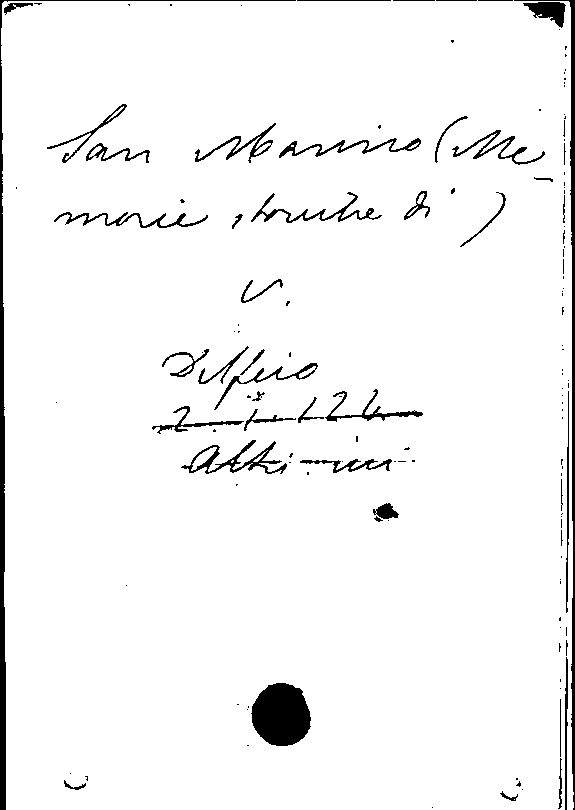 San Marino (Me-
morie storiche di)
V.
Delfico
2. I. 124
Altri ivi